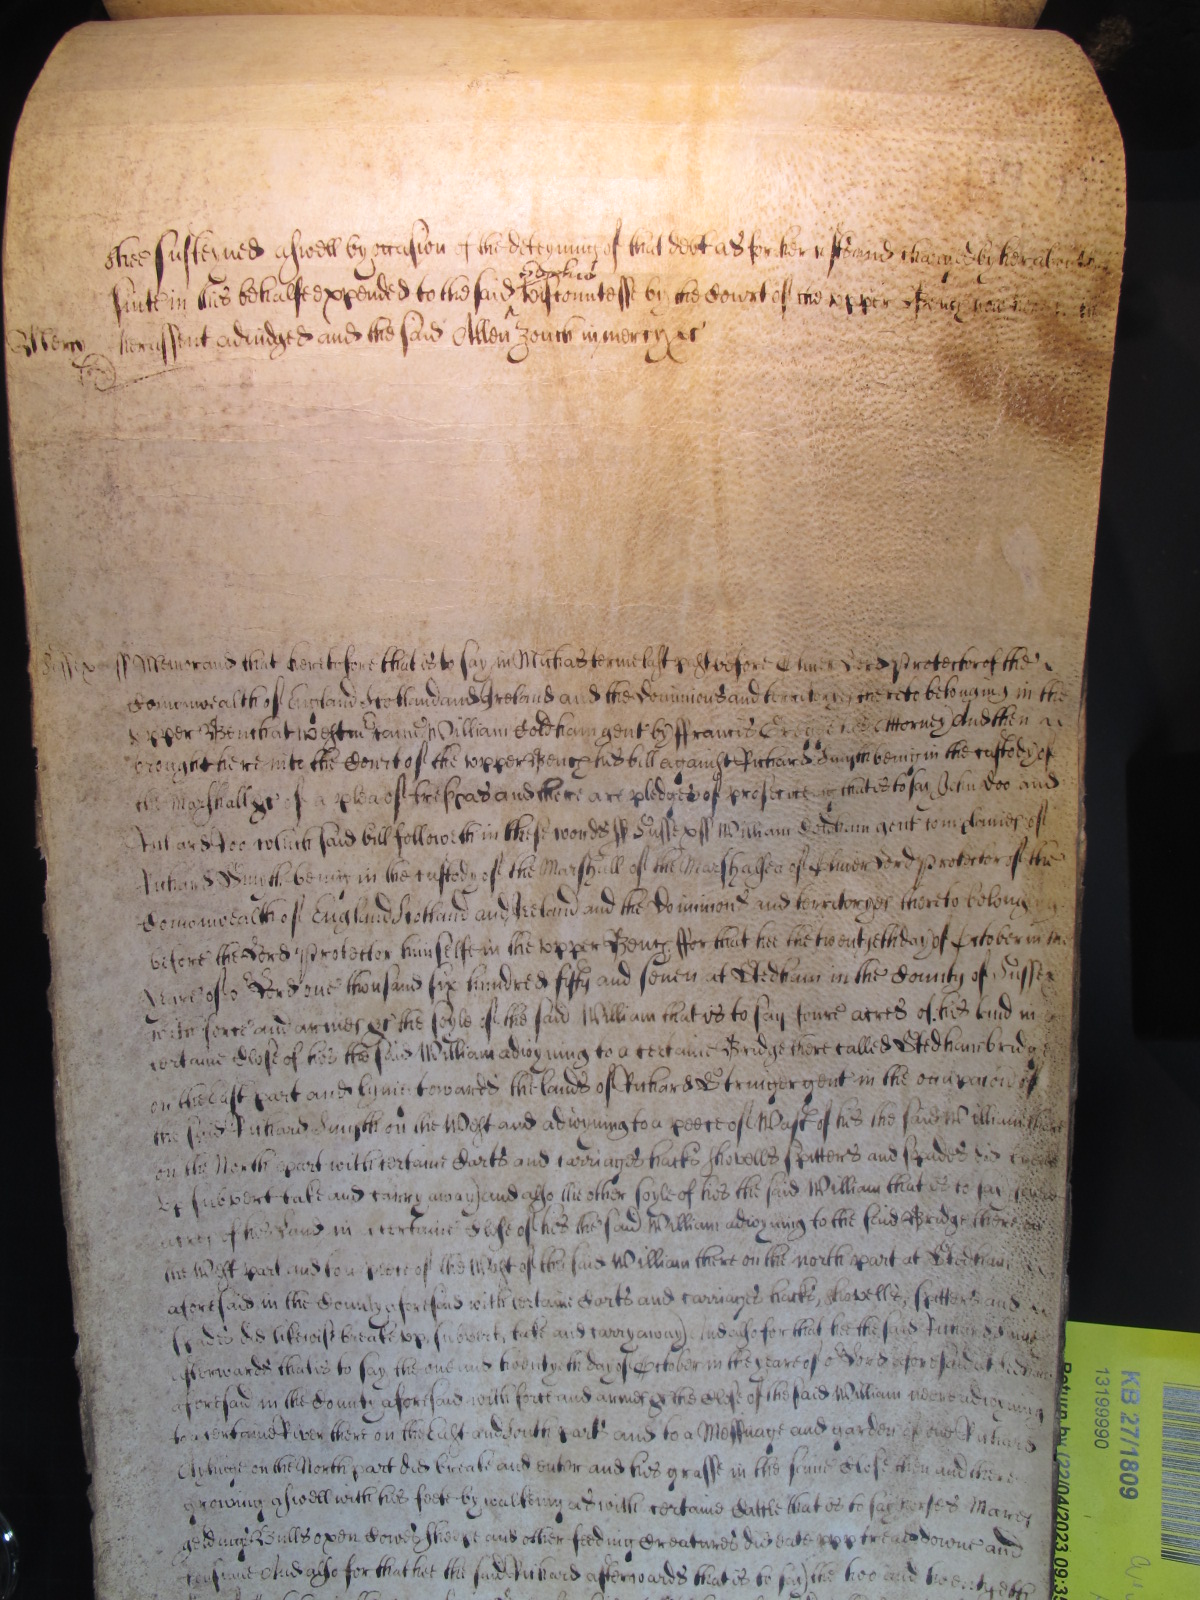 shee susteyned aswell by occasion of the deteyning of that debt as for her expences and charges by her about her
Sophia
suite in this behalfe expended to the said Viscountesse by the Court of the upper Bench now here
Mercy her assent adiudged and the said Allen Zouch in mercy &c
Sussex ss Memorand that heretofore that is to say in Michas terme last past before Oliver Lord Protector of the
Comonwealth of England Scotland and Ireland and the Dominions and territoryes thereto belonging in the
upper Bench at Westmr came William Coldham gent by Francis his Attorney And then
brought here into the Court of the upper Bench his bill against Richard Smyth being in the custody of
the Marshall &c of a plea of trespas and there are pledges of prosecuting that is to say John Doo and
Richard Roo which said bill followeth in these words ss Sussex ss William Coldham gent complaines of
Richard Smyth being in the custody of the Marshall of the Marshalsea of Oliver Lord Protector of the
Comonwealth of England Scotland and Ireland and the Dominions and territoryes thereto belonging
before the Lord Protector himselfe in the upper Bench ffor that hee the twentyeth day of October in the
yeare of or Lord one thousand six hundred fifty and seven at Stedham in the County of Sussex
with force and armes &c the soyle of the said William that is to say foure acres of his land in a
certaine Close of his the said William adioyning to a certaine Bridge there called Stedhambridge
on the East part and lyinge towards the lands of Richard Stringer gent in the occupacon of
the said Richard Smyth on the West and adioyning to a peece of Wast of his the said William there
on the North part with certaine Carts and carriages hacks showells spitters and spades did breake
up subvert take and carry away And also the other soyle of his the said William that is to say
acres of his Land in a certaine Close of his the said William adioyning to the said Bridge there on
the West part and to a peece of the Wast of the said William there on the north part at Stedham
aforesaid in the County aforesaid with certaine Carts and carriages hacks, showells, spitters and
spades did likewise breake up, subvert, take and carry away And also for that hee the said Richard Smyth
afterwards that is to say the one and twentyeth day of October in the yeare of or Lord aforesaid at Stedham
aforesaid in the County aforesaid with force and armes &c the Close of the said William neere adioyning
to a certaine River there on the East and South parts and to a Messuage and garden of one Richard
on the North part did breake and enter and his grasse in the same Close then and there
growing aswell with his feete by walking as with certaine Cattle that is to say horses Mares
geldings Bulls oxen Cowes sheepe and other feeding Creatures did eate upp tread downe and
consume And also for that hee the said Richard afterwards that is to say the two and twentyeth
KB 27/1809
13199990
Return by (22/04/2023 09:3